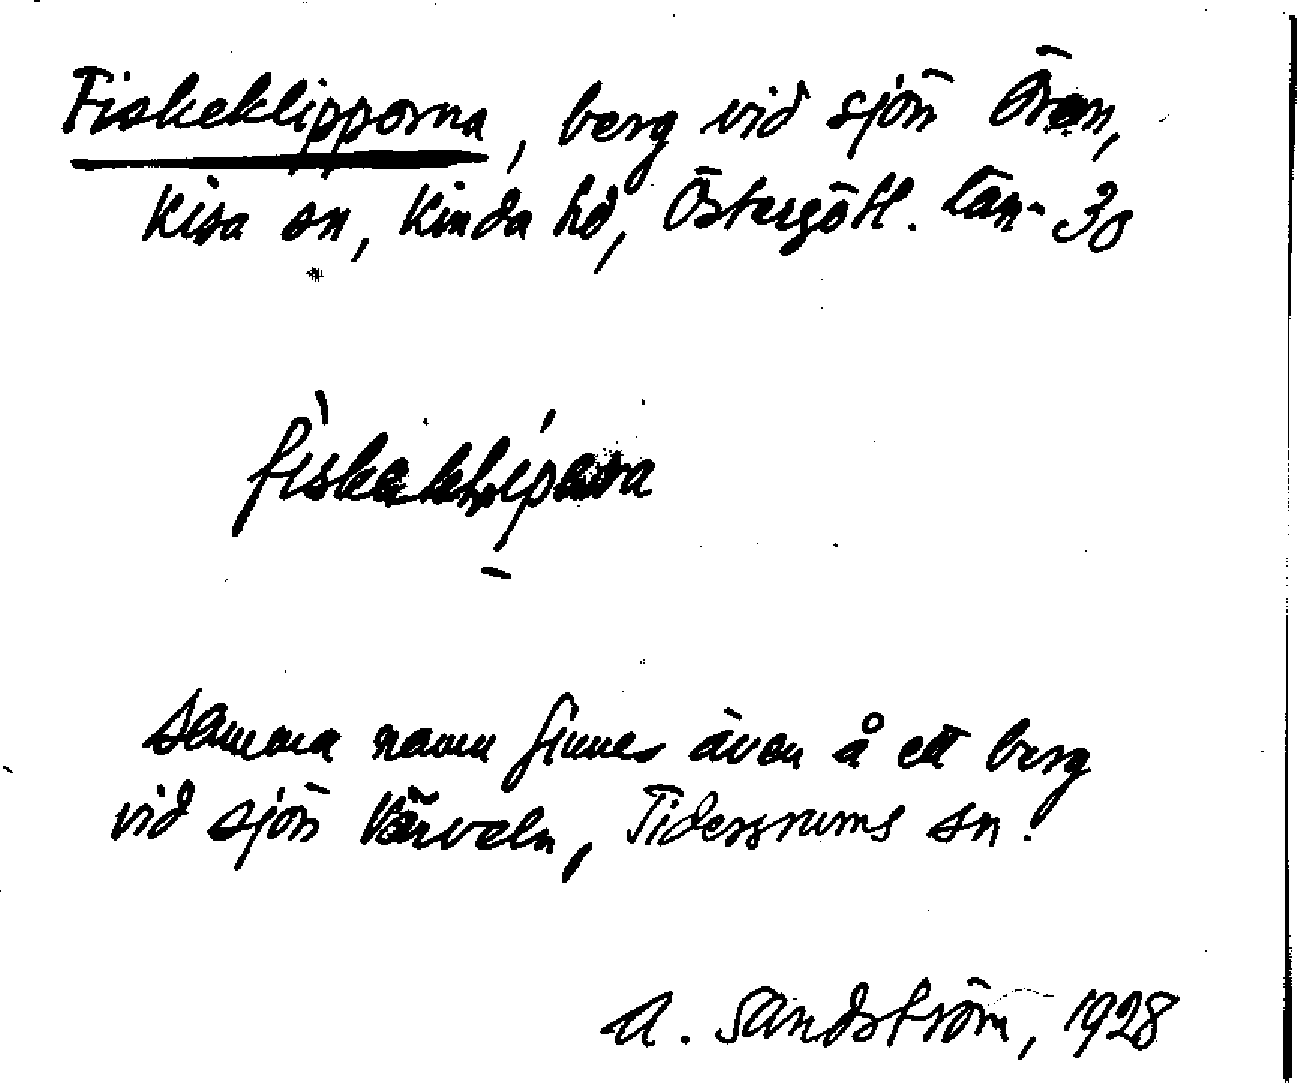 Fiskeklipporna, berg vid sjön Ören,
Kisa sn, Kinda hd, Östergötl. län - 30
samma namn finnes även å ett berg
vid sjön Värveln, Tidersrums sn.
A. Sandström, 1928